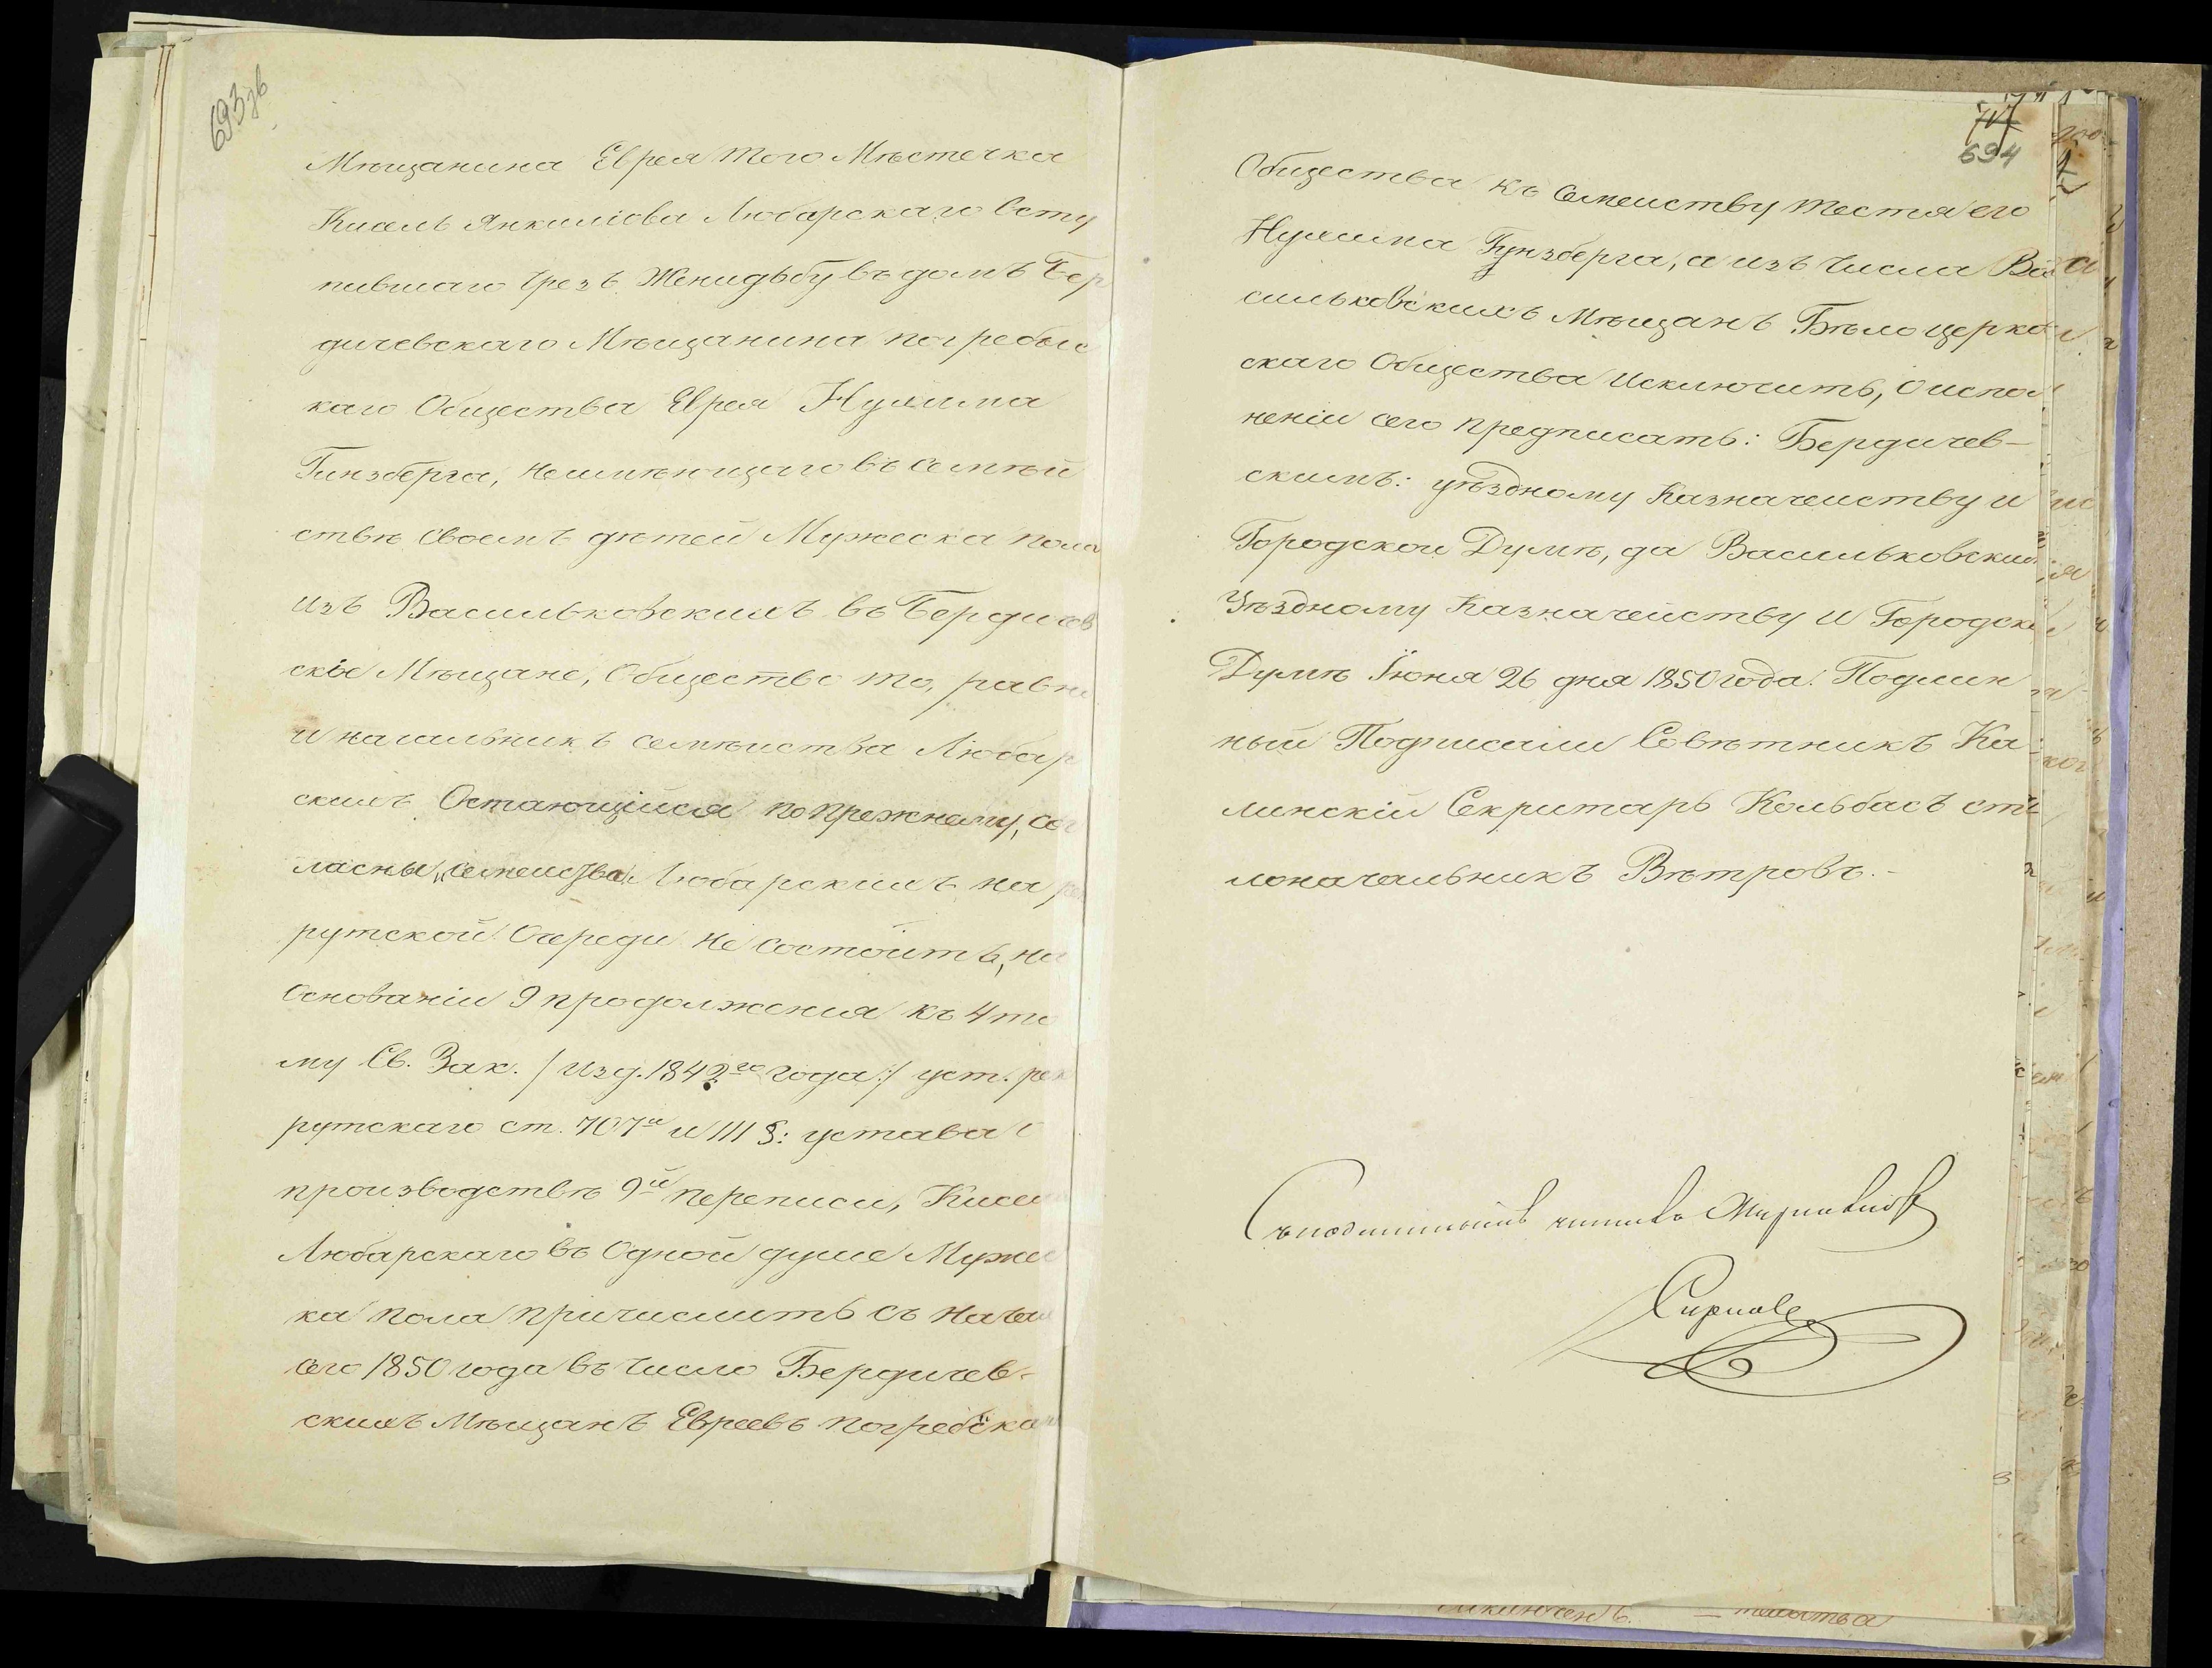 693 зв
Мѣщанина Еврея того Мѣстечка
Кисель Янкелїова Любарскаго всту
пившаго чрезъ Женидьбу въ домъ Бер
дичевскаго Мѣщанина погребыс
каго Общества Еврея Нухима
Гинзберга, неимѣющаго въ семѣй
ствѣ своемъ дѣтей Мужеска пола
изъ Васильковскихъ въ Бердичев
скіе Мѣщане, Общество то, равно
и начальникъ семѣиства Любар
скихъ Остающійся по прежнему, сог
ласны, семеиство Любарскихъ на ре
рутской Очереди не состоитъ, на
Основаніи 9 продолженія къ 4 то
му Св. Зак. / Изд. 1842го года:/ уст. рек
рутскаго ст. 707й и 111 §: устава о
производствѣ 9й переписи, Кисе
Любарскаго въ Одной душе Мужес
ка пола причислить съ начал
сего 1850 года въ число Бердичев-
скихъ Мѣщанъ Евреевъ погребыскаго
717
694
Общества къ семеиству тестя его
Нухима Гунзберга, а изъ числа Ва
сильковскихъ Мѣщанъ Бѣлоцерков
скаго Общества исключить, о испол
неніи сего предписать: Бердичев-
скимъ: уѣздному Казначеиству и
Городской Думѣ, да Васильковским
Уѣздному Казначеиству и Городской
Думѣ Іюня 26 дня 1850 года. Подлин
ный Подписали Совѣтникъ Ка-
линскій Секритарь Кольбасъ сто
лоначальникъ Вѣтровъ.-
Съ подлиннымъ читалъ